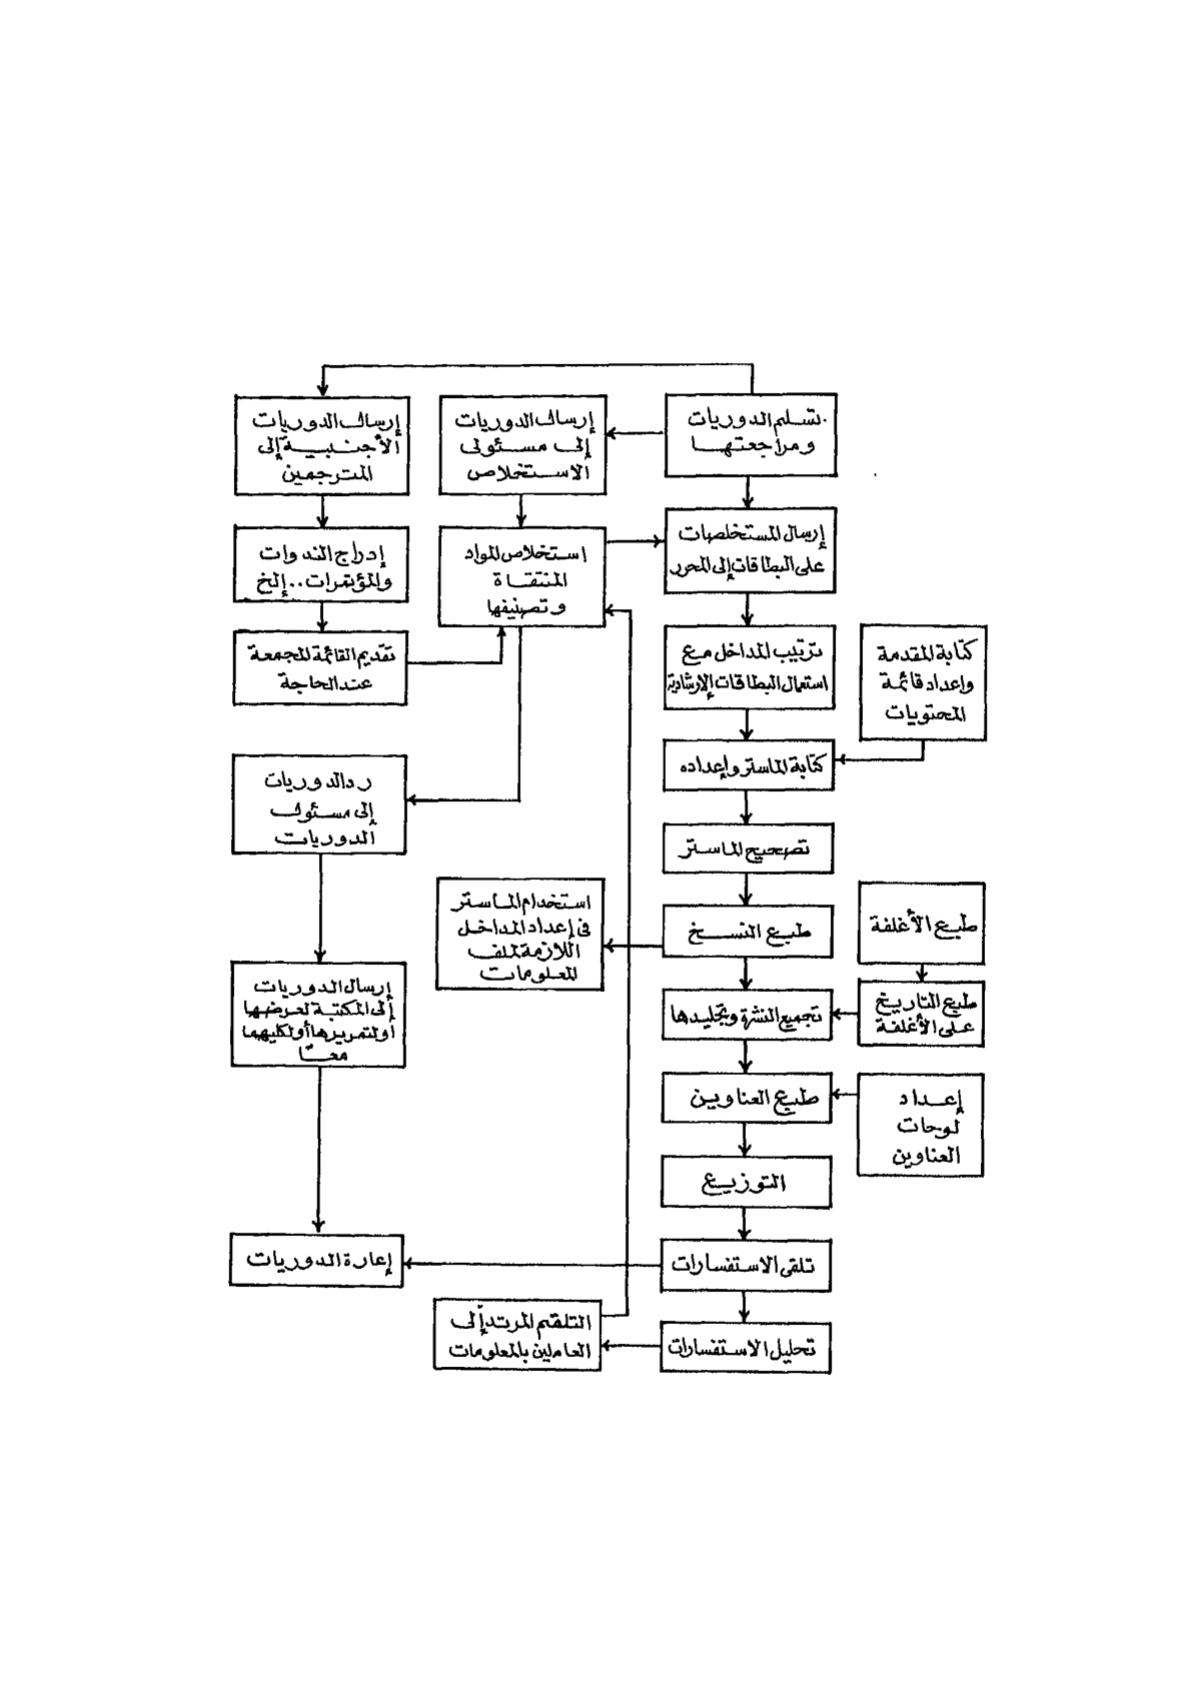 تسلم الدوريات
ومراجعتها
إرسال الدوريات
إلى مسئولى
الاستخلاص
إرسال الدوريات
الأجنبية إلى
المترجمين
إرسال المستخلصات
على البطاقات إلى المحرر
استخلاص المواد
المنتقاة
وتصنيفها
إدراج الندوات
والمؤتمرات .. إلخ
ترتيب المداخل مع
استعمال البطاقات الإرشادية
كتابة المقدمة
وإعداد قائمة
المحتويات
تقديم القائمة المجمعة
عند الحاجة
كتابة الماستر وإعداده
رد الدوريات
إلى مسئول
الدوريات
تصحيح الماستر
طبع النسخ
استخدام الماستر
فى إعداد المداخل
اللازمة لملف
المعلومات
طبع الأغلفة
طبع التاريخ
على الأغلفة
تجميع النشرة وتجليدها
إرسال الدوريات
إلى المكتبة لعرضها
أو لتمريرها أو لكليهما
معًا
طبع العناوين
إعداد
لوحات
العناوين
التوزيع
تلقى الاستفسارات
إعارة الدوريات
تحليل الاستفسارات
التلقيم المرتد إلى
العاملين بالمعلومات